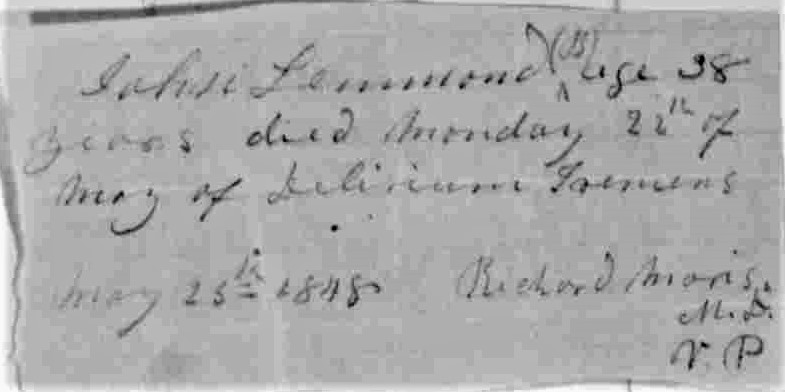 John Lemmond (B) age 38
years died Monday 22th of
May of Delirium Tremens
May 25th 1848 Richard Moris,
M.D.
V. P